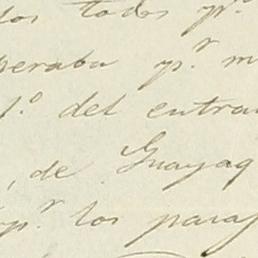 los todos p.r
peraba p.r m
1.o del entra
, de Guayaq
p.r los paraj